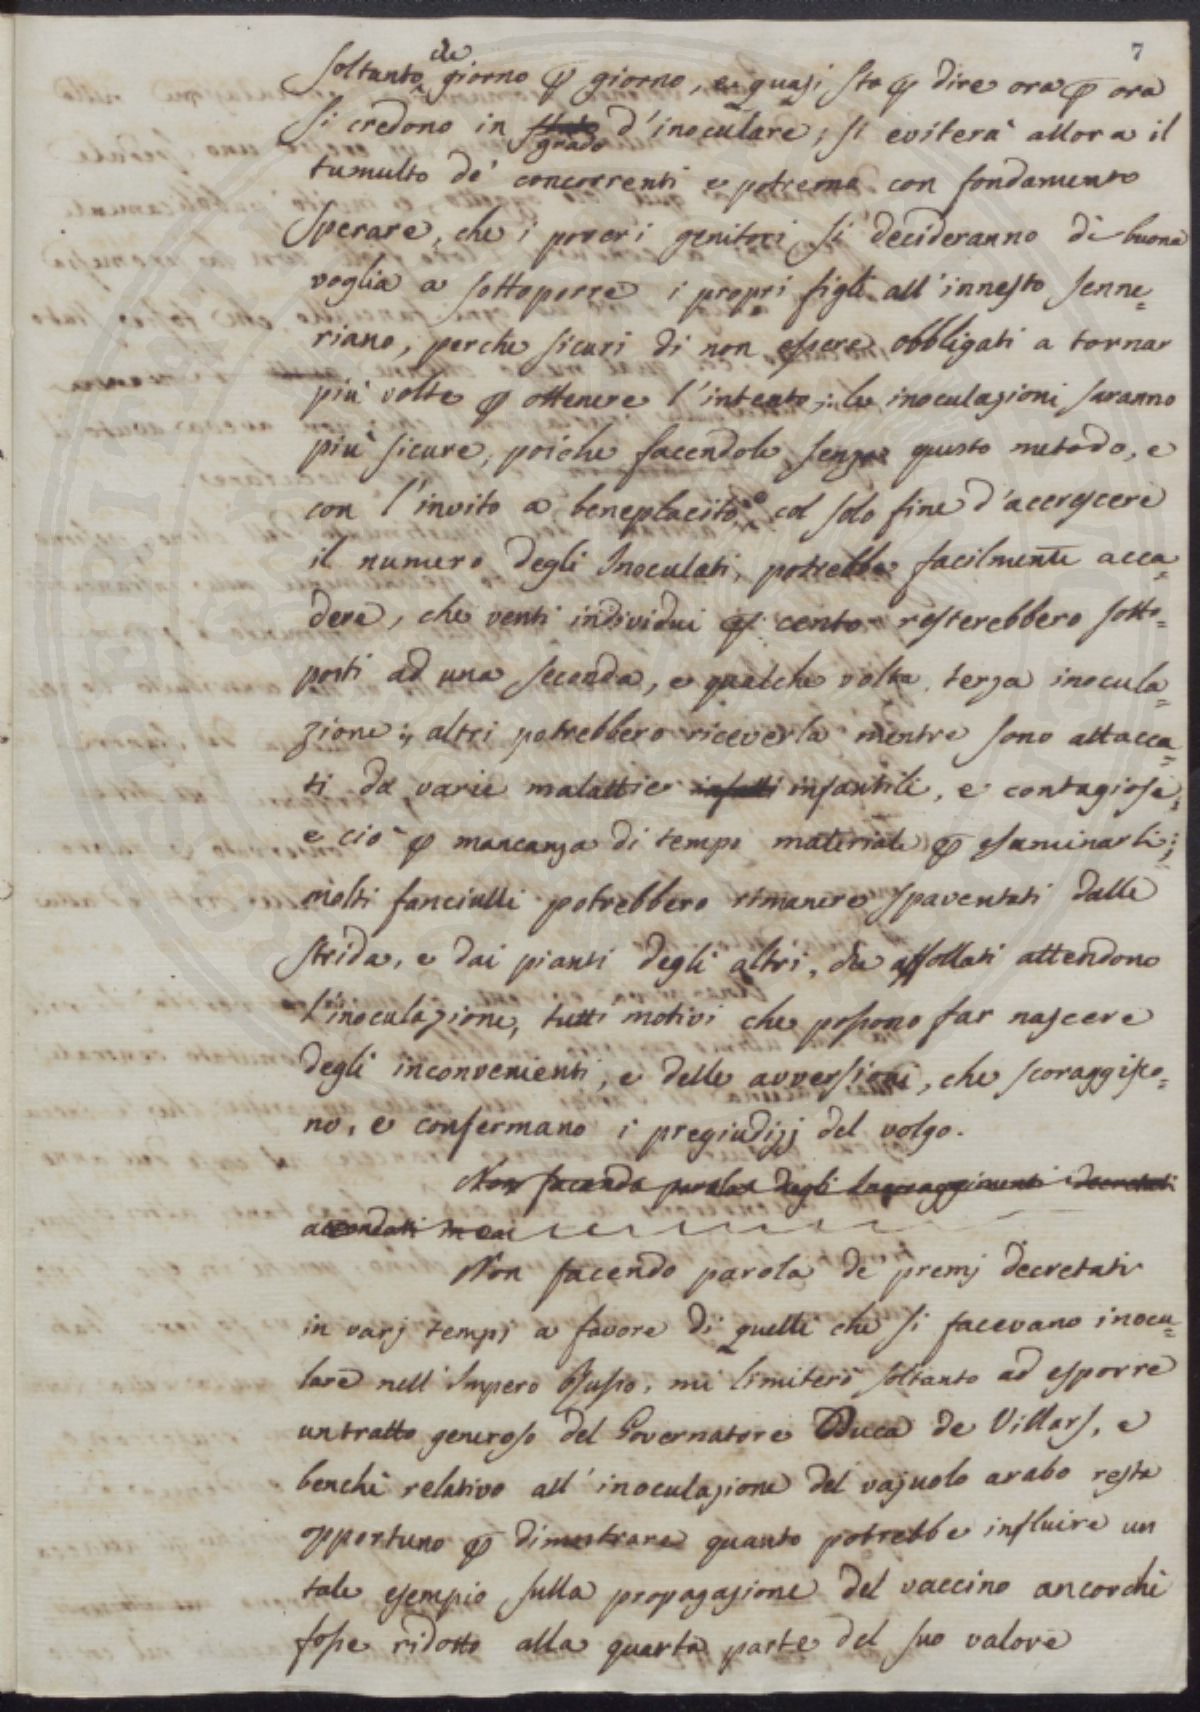 7
soltanto de giorno ꝑ giorno, e quasi sto ꝑ dire ora ꝑ ora
si credono in stato grado d'inoculare; si eviterà allora il
tumulto de' concorrenti e potremo con fondamento
sperare, che i poveri genitori si decideranno di buona
voglia a sottoporre i proprj figli all'innesto Jenne=
riano, perchè sicuri di non essere obbligati a tornar
più volte ꝑ ottenere l'intento; le inoculazioni saranno
più sicure, poichè facendole senza questo metodo, e
con l'invito a beneplacito, col solo fine d'accrescere
il numero degli Inoculati, potrebbe facilmente acca=
dere, che venti individui ꝑ cento resterebbero sotto=
posti ad una seconda, e qualche volta terza inocula=
zione; altri potrebbero riceverla mentre sono attacca=
ti da varie malattie infatti infantili, e contagiose,
e ciò ꝑ mancanza di tempo materiale ꝑ esaminarli;
molti fanciulli potrebbero rimanere spaventati dalle
strida, e dai pianti degli altri, che affollati attendono
l'inoculazione, tutti motivi che possono far nascere
degli inconvenienti, e delle avversioni, che scoraggisco=
no, e confermano i pregiudizj del volgo.
Non facendo parola degli Incoraggimenti decretati
accordati in cui
Non facendo parola de' premj decretati
in varj tempi a favore di quelli che si facevano inocu=
lare nell'Impero Russo, mi limiterò soltanto ad esporre
un tratto generoso del Governatore Duca de Villars, e
benchè relativo all'inoculazione del vajuolo arabo resta
opportuno ꝑ dimostrare quanto potrebbe influire un
tale esempio sulla propagazione del vaccino ancorchè
fosse ridotto alla quarta parte del suo valore